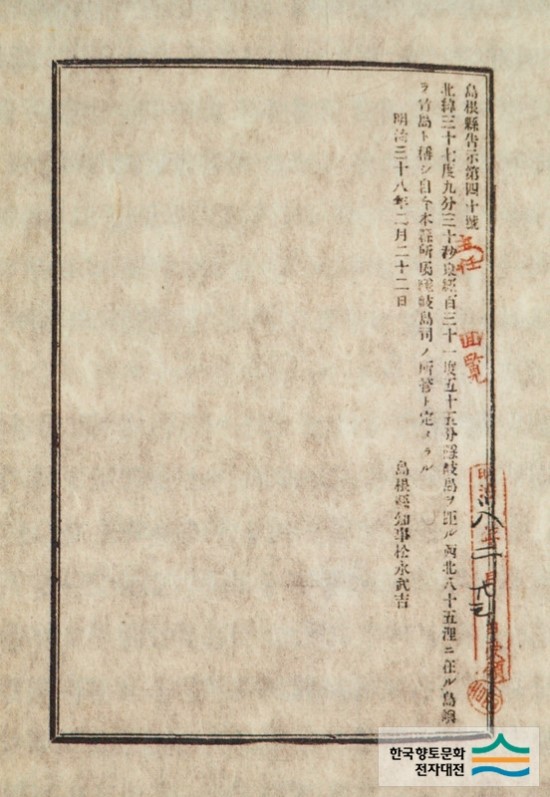 島根縣告示第四十號
北緯三十七度九分三十秒東經百三十一度五十五分隱岐島ヲ距ル西北八十五浬ニ在ル島嶼
ヲ竹島ト稱シ自今本縣所屬隱岐島司ノ所管ト定メラル
明治三十八年二月二十二日
島根縣知事松永武吉
主任
回覧
明治
한국향토문화
전자대전